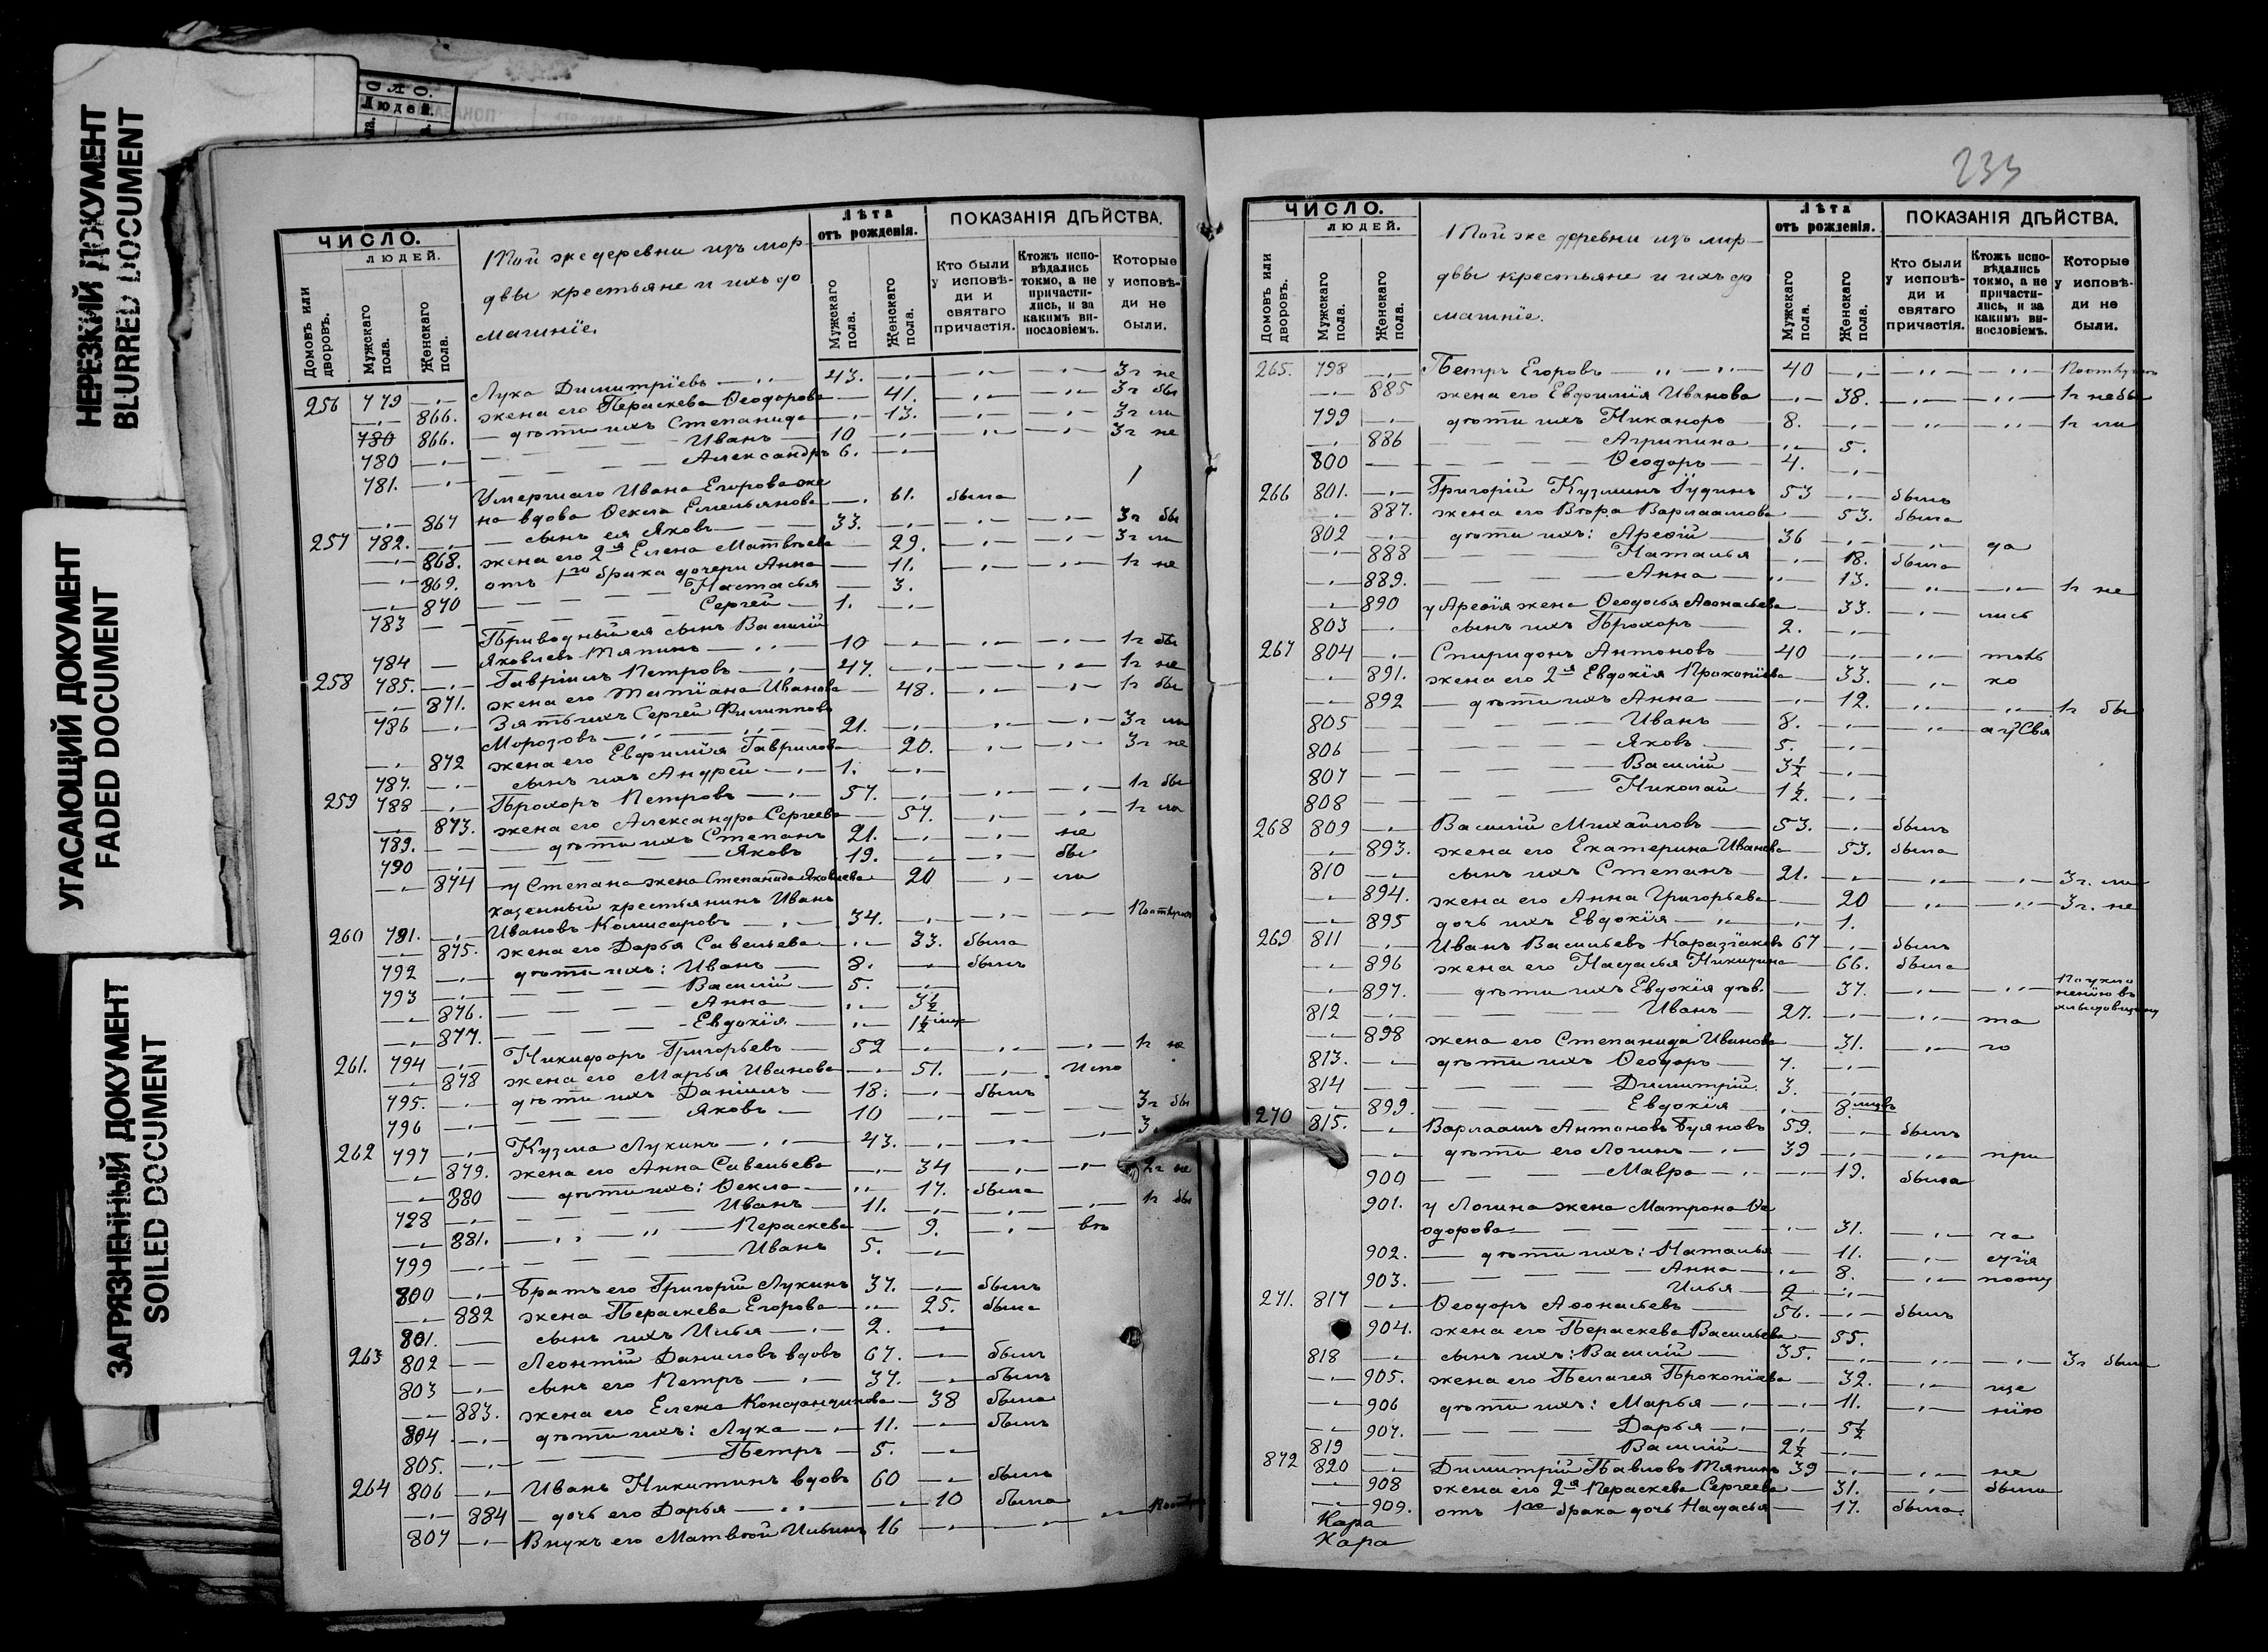 НЕРЕЗКИЙ ДОКУМЕНТ
BLURRED DOCUMENT
УГАСАЮЩИЙ ДОКУМЕНТ
FADED DOCUMENT
ЗАГРЯЗНЕННЫЙ ДОКУМЕНТ
SOILED DOCUMENT
Людей.
ЧИСЛО.
ЛЮДЕЙ.
Домовъ или дворовъ.
Мужскаго пола.
Женскаго пола.
Той же деревни изъ мор-
двы крестьяне и ихъ до
машніе.
Лѣта
отъ рожденія.
Мужскаго пола.
Женскаго пола.
ПОКАЗАНІЯ ДѢЙСТВА.
Кто были у исповѣди и святаго причастія.
Ктожъ исповѣдались токмо, а не причастились, и за какимъ винословіемъ.
Которые у исповѣди не были.
256 779 Лука Димитріевъ 43. 3г не
866. жена его Параскева Ѳеодорова 41. 3г бы
780 866. дѣти ихъ Степанида 13. 3г ли
780 Иванъ 10 3г не
781. Александръ 6.
Умершаго Ивана Егорова же
867 на вдова Ѳекла Емельянова 61. была
257 782. сынъ ея Яковъ 33. 3г бы
868. жена его 2я Елена Матвѣева 29. 3г ли
869. отъ 1го брака дочери Анна 11. 1г не
870 Настасья 3.
783 Сергей 1.
Приводный ея сынъ Василій
784 Яковлевъ Тяпинъ 10 1г бы
258 785. Гавріилъ Петровъ 47. 1г не
871. жена его Татіана Иванова 48. 1г бы
786 Зять ихъ Сергей Филипповъ
Морозовъ 21. 3г ли
872 жена его Евфимія Гаврилова 20. 3г не
787. сынъ ихъ Андрей 1.
259 788 Прохоръ Петровъ 57. 1г бы
873. жена его Александра Сергеева 57. 1г ли
789. дѣти ихъ Степанъ 21. не
790 Яковъ 19. бы
874 у Степана жена Степанида Яковлева 20 ли
казенный крестьянинъ Иванъ
260 791. Ивановъ Комисаровъ 34.
875. жена его Дарья Савельева 33. была
792 дѣти ихъ: Иванъ 8. былъ
793 Василій 5.
876. Анна 3½
877. Евдокія 1½
261. 794 Никифоръ Григорьевъ 52 1г не
878 жена его Марья Иванова 51. Испо
795. дѣти ихъ Даніилъ 18. былъ
796 Яковъ 10 3г бы
262 797 Кузма Лукинъ 43. 3.
879. жена его Анна Савельева 34 2г не
880 дѣти ихъ: Ѳекла 17. была
798 Иванъ 11. 1г бы
881. Параскева 9. въ
799 Иванъ 5.
800 Братъ его Григорій Лукинъ 37. былъ
882 жена Параскева Егорова 25. была
801. сынъ ихъ Илья 2.
263 802 Леонтій Даниловъ вдовъ 67. былъ
803 сынъ его Петръ 37. былъ
883. жена его Елена Константинова 38 была
804 дѣти ихъ: Лука 11. былъ
805. Петръ 5.
264 806 Иванъ Никитинъ вдовъ 60 былъ
884 дочь его Дарья 10 была
807 Внукъ его Матвѣй Ильинъ 16
233
ЧИСЛО.
ЛЮДЕЙ.
Домовъ или дворовъ.
Мужскаго пола.
Женскаго пола.
Той же деревни изъ мор-
двы крестьяне и ихъ до
машніе.
Лѣта
отъ рожденія.
Мужскаго пола.
Женскаго пола.
ПОКАЗАНІЯ ДѢЙСТВА.
Кто были у исповѣди и святаго причастія.
Ктожъ исповѣдались токмо, а не причастились, и за какимъ винословіемъ.
Которые у исповѣди не были.
265. 798 Петръ Егоровъ 40
885 жена его Евфимія Иванова 38. 1г не бы
799 дѣти ихъ Никаноръ 8. 1г ли
886 Агрипина 5.
800 Ѳеодоръ 4.
266 801. Григорій Кузминъ Іудинъ 53 былъ
887. жена его Вѣра Варлаамова 53. была
802 дѣти ихъ: Арефій 36 да
888 Наталья 18. была
889. Анна 13. 1г не
890 у Арефія жена Ѳеодосья Аѳонасьева 33. лись
803 сынъ ихъ Прохоръ 2.
267 804 Спиридонъ Антоновъ 40 токъ
891. жена его 2я Евдокія Прокопіева 33. ко
892 дѣти ихъ Анна 12. 1г бы
805 Иванъ 8.
806 Яковъ 5.
807 Василій 3½
808 Николай 1½.
268 809 Василій Михайловъ 53. былъ
893. жена его Екатерина Иванова 53. была
810 сынъ ихъ Степанъ 21. 3г. ли
894. жена его Анна Григорьева 20 3г. не
895 дочь ихъ Евдокія 1.
269 811 Иванъ Васильевъ Каразіаковъ 67 былъ
896 жена его Настасья Никитина 66. была
897. дѣти ихъ Евдокія дѣв. 37. По укло
нению въ
812 Иванъ 27. та
898 жена его Степанида Иванова 31. го
813. дѣти ихъ Ѳеодоръ 7.
814 Димитрій. 3.
899. Евдокія 8
270 815. Варлаамъ Антоновъ Буяновъ 59. былъ
дѣти его Логинъ 39 при
900 Мавра 19. была
901. у Логина жена Матрона Ѳе
одорова 31. ча
902. дѣти ихъ: Наталья 11. стія
903. Анна 8.
Илья 2
271. 817 Ѳеодоръ Аѳонасьевъ 56. былъ
904. жена его Параскева Васильева 55.
818 сынъ ихъ: Василій 35. 3г были
905. жена его Пелагея Прокопіева 32. ще
906 дѣти ихъ: Марья 11. нію
907. Дарья 5½
819 Василій 2½
872 820 Димитрій Павловъ Тяпинъ 39 не
908 жена его 2я Параскева Сергеева 31. были
909. отъ 1го брака дочь Настасья 17. была.
Кара
Кара